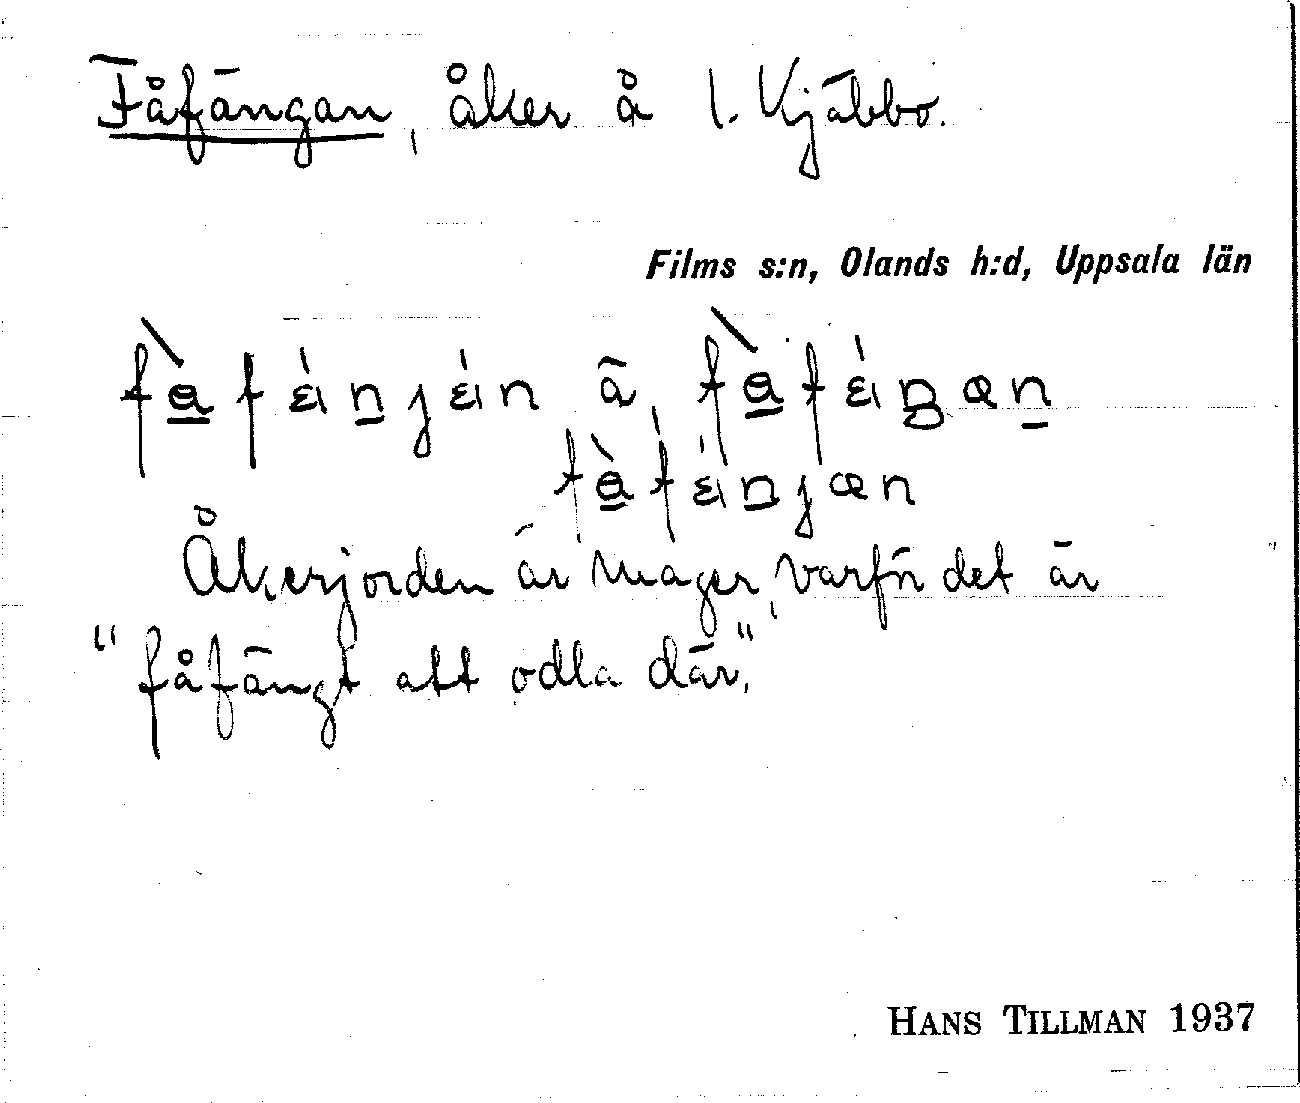 Fåfängan, åker å 1. Kjäbbo.
Films s:n, Olands h:d, Uppsala län
Åkerjorden är mager, varför det är
"fåfängt att odla där."
HANS TILLMAN 1937